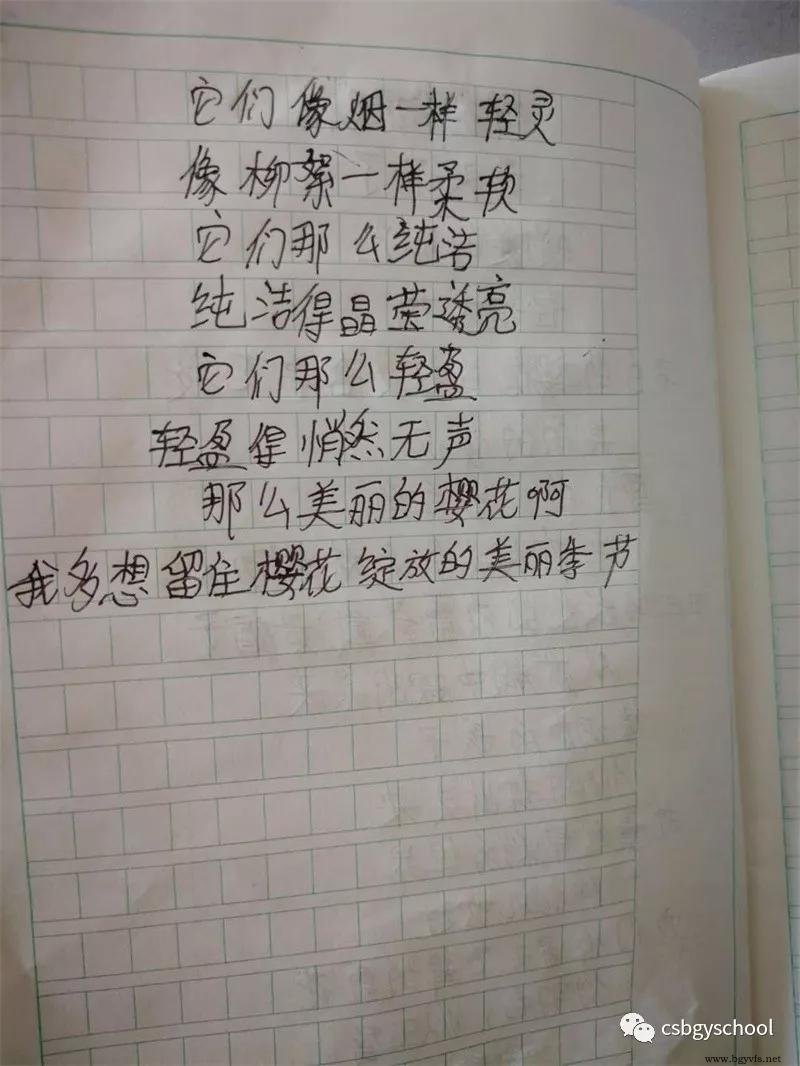 它们像烟一样轻灵
像柳絮一样柔软
它们那么纯洁
纯洁得晶莹透亮
它们那么轻盈
轻盈得悄然无声
那么美丽的樱花啊
我多想留住樱花绽放的美丽季节
csbgyschool
www.bgyvfs.net